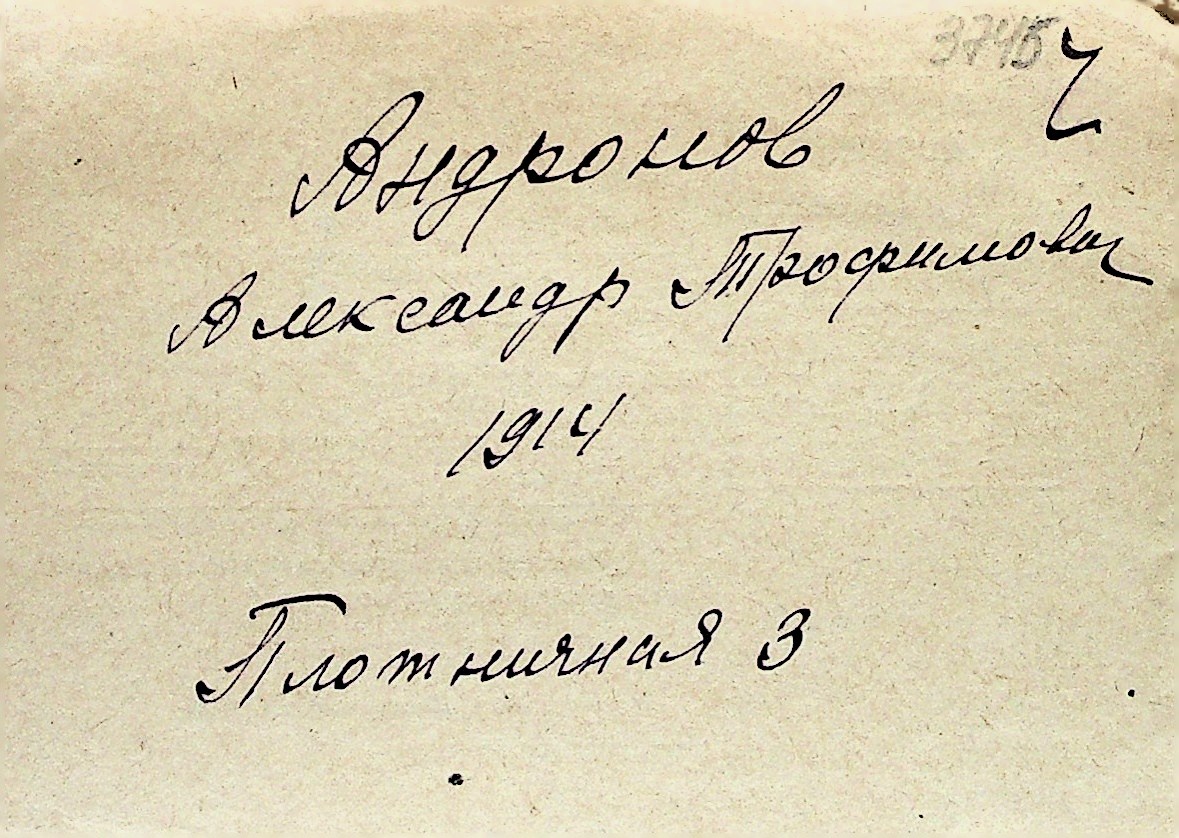 3745
Андронов
Александр Трофимович
1914
Плотничная 3